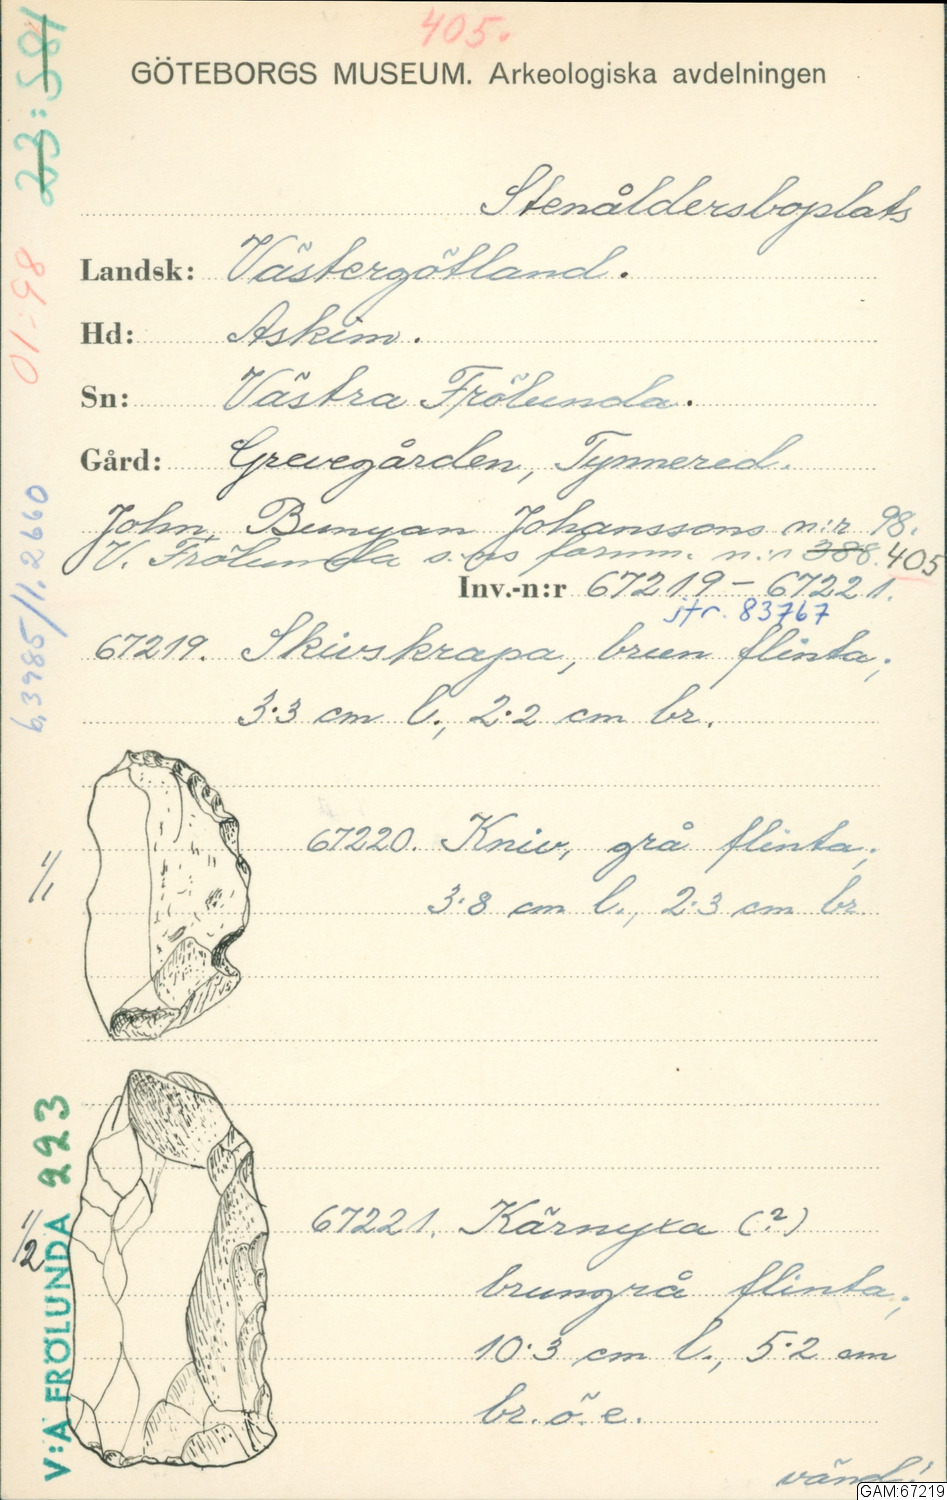 405.
GÖTEBORGS MUSEUM. Arkeologiska avdelningen
Stenåldersboplats
Landsk: Västergötland.
Hd: Askim.
Sn: Västra Frölunda.
Gård: Grevegården, Tynnered.
John Bunyan Johanssons n:r 98.
V. Frölunda s:ns fornm. n:r 388. 405
Inv.-n:r 67219 – 67221.
jfr. 83767
67219. Skivskrapa, brun flinta;
3·3 cm l., 2·2 cm br.
67220. Kniv, grå flinta;
3·8 cm l., 2·3 cm br.
1/1
67221. Kärnyxa (?)
brungrå flinta;
10·3 cm l., 5·2 cm
br. ö. e.
1/2
vänd!
23:581
01:98
6,3985/1,2660
V:A FRÖLUNDA 223
GAM:67219